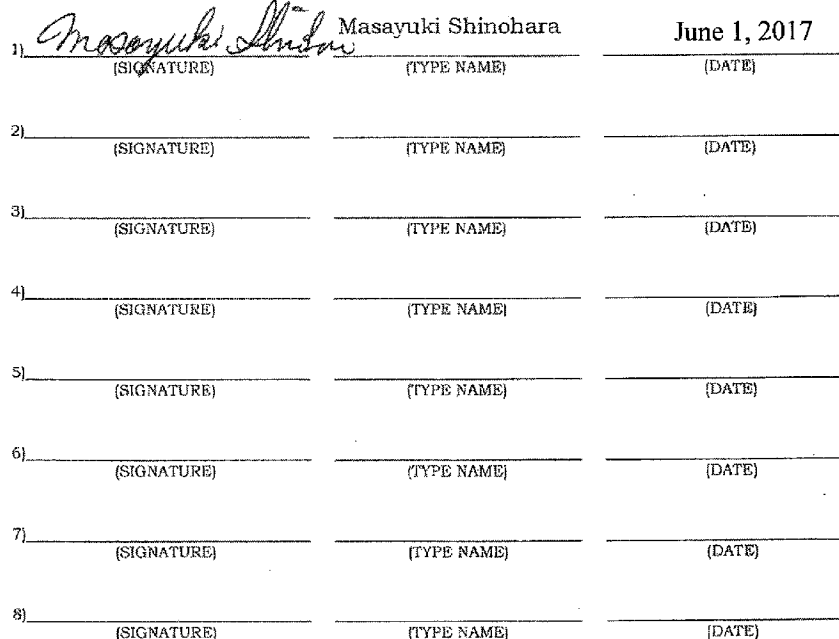 Masayuki Shinohara Masayuki Shinohara June 1, 2017
1) (SIGNATURE) (TYPE NAME) (DATE)
2) (SIGNATURE) (TYPE NAME) (DATE)
3) (SIGNATURE) (TYPE NAME) (DATE)
4) (SIGNATURE) (TYPE NAME) (DATE)
5) (SIGNATURE) (TYPE NAME) (DATE)
6) (SIGNATURE) (TYPE NAME) (DATE)
7) (SIGNATURE) (TYPE NAME) (DATE)
8) (SIGNATURE) (TYPE NAME) (DATE)